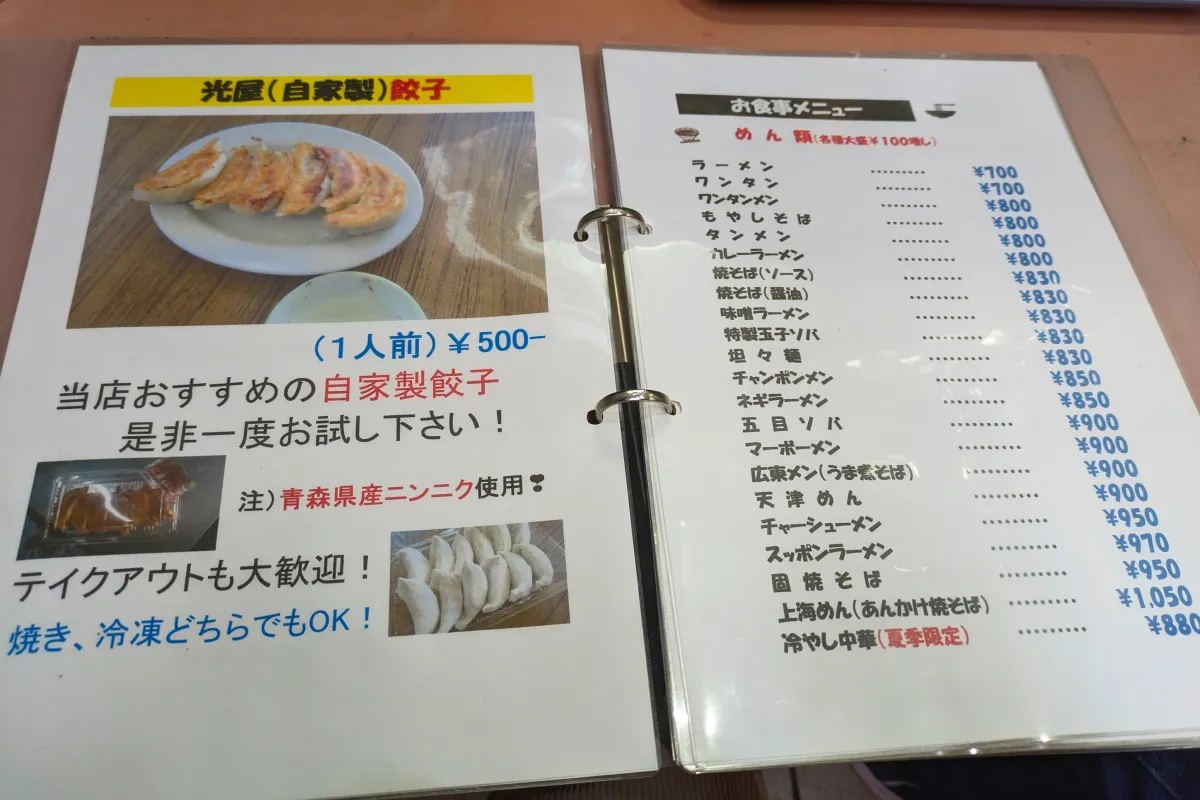 光屋(自家製)餃子
(1人前)¥500-
当店おすすめの自家製餃子
是非一度お試し下さい！
注)青森県産ニンニク使用❣
テイクアウトも大歓迎！
焼き、冷凍どちらでもOK！
お食事メニュー
めん類(各種大盛¥100増し)
ラーメン ……… ¥700
ワンタン ……… ¥700
ワンタンメン ……… ¥800
もやしそば ……… ¥800
タンメン ……… ¥800
カレーラーメン ……… ¥800
焼そば(ソース) ……… ¥830
焼そば(醤油) ……… ¥830
味噌ラーメン ……… ¥830
特製玉子ソバ ……… ¥830
坦々麺 ……… ¥830
チャンポンメン ……… ¥850
ネギラーメン ……… ¥850
五目ソバ ……… ¥900
マーボーメン ……… ¥900
広東メン(うま煮そば) ……… ¥900
天津めん ……… ¥900
チャーシューメン ……… ¥950
スッポンラーメン ……… ¥970
固焼そば ……… ¥950
上海めん(あんかけ焼そば) ……… ¥1,050
冷やし中華(夏季限定) ……… ¥880